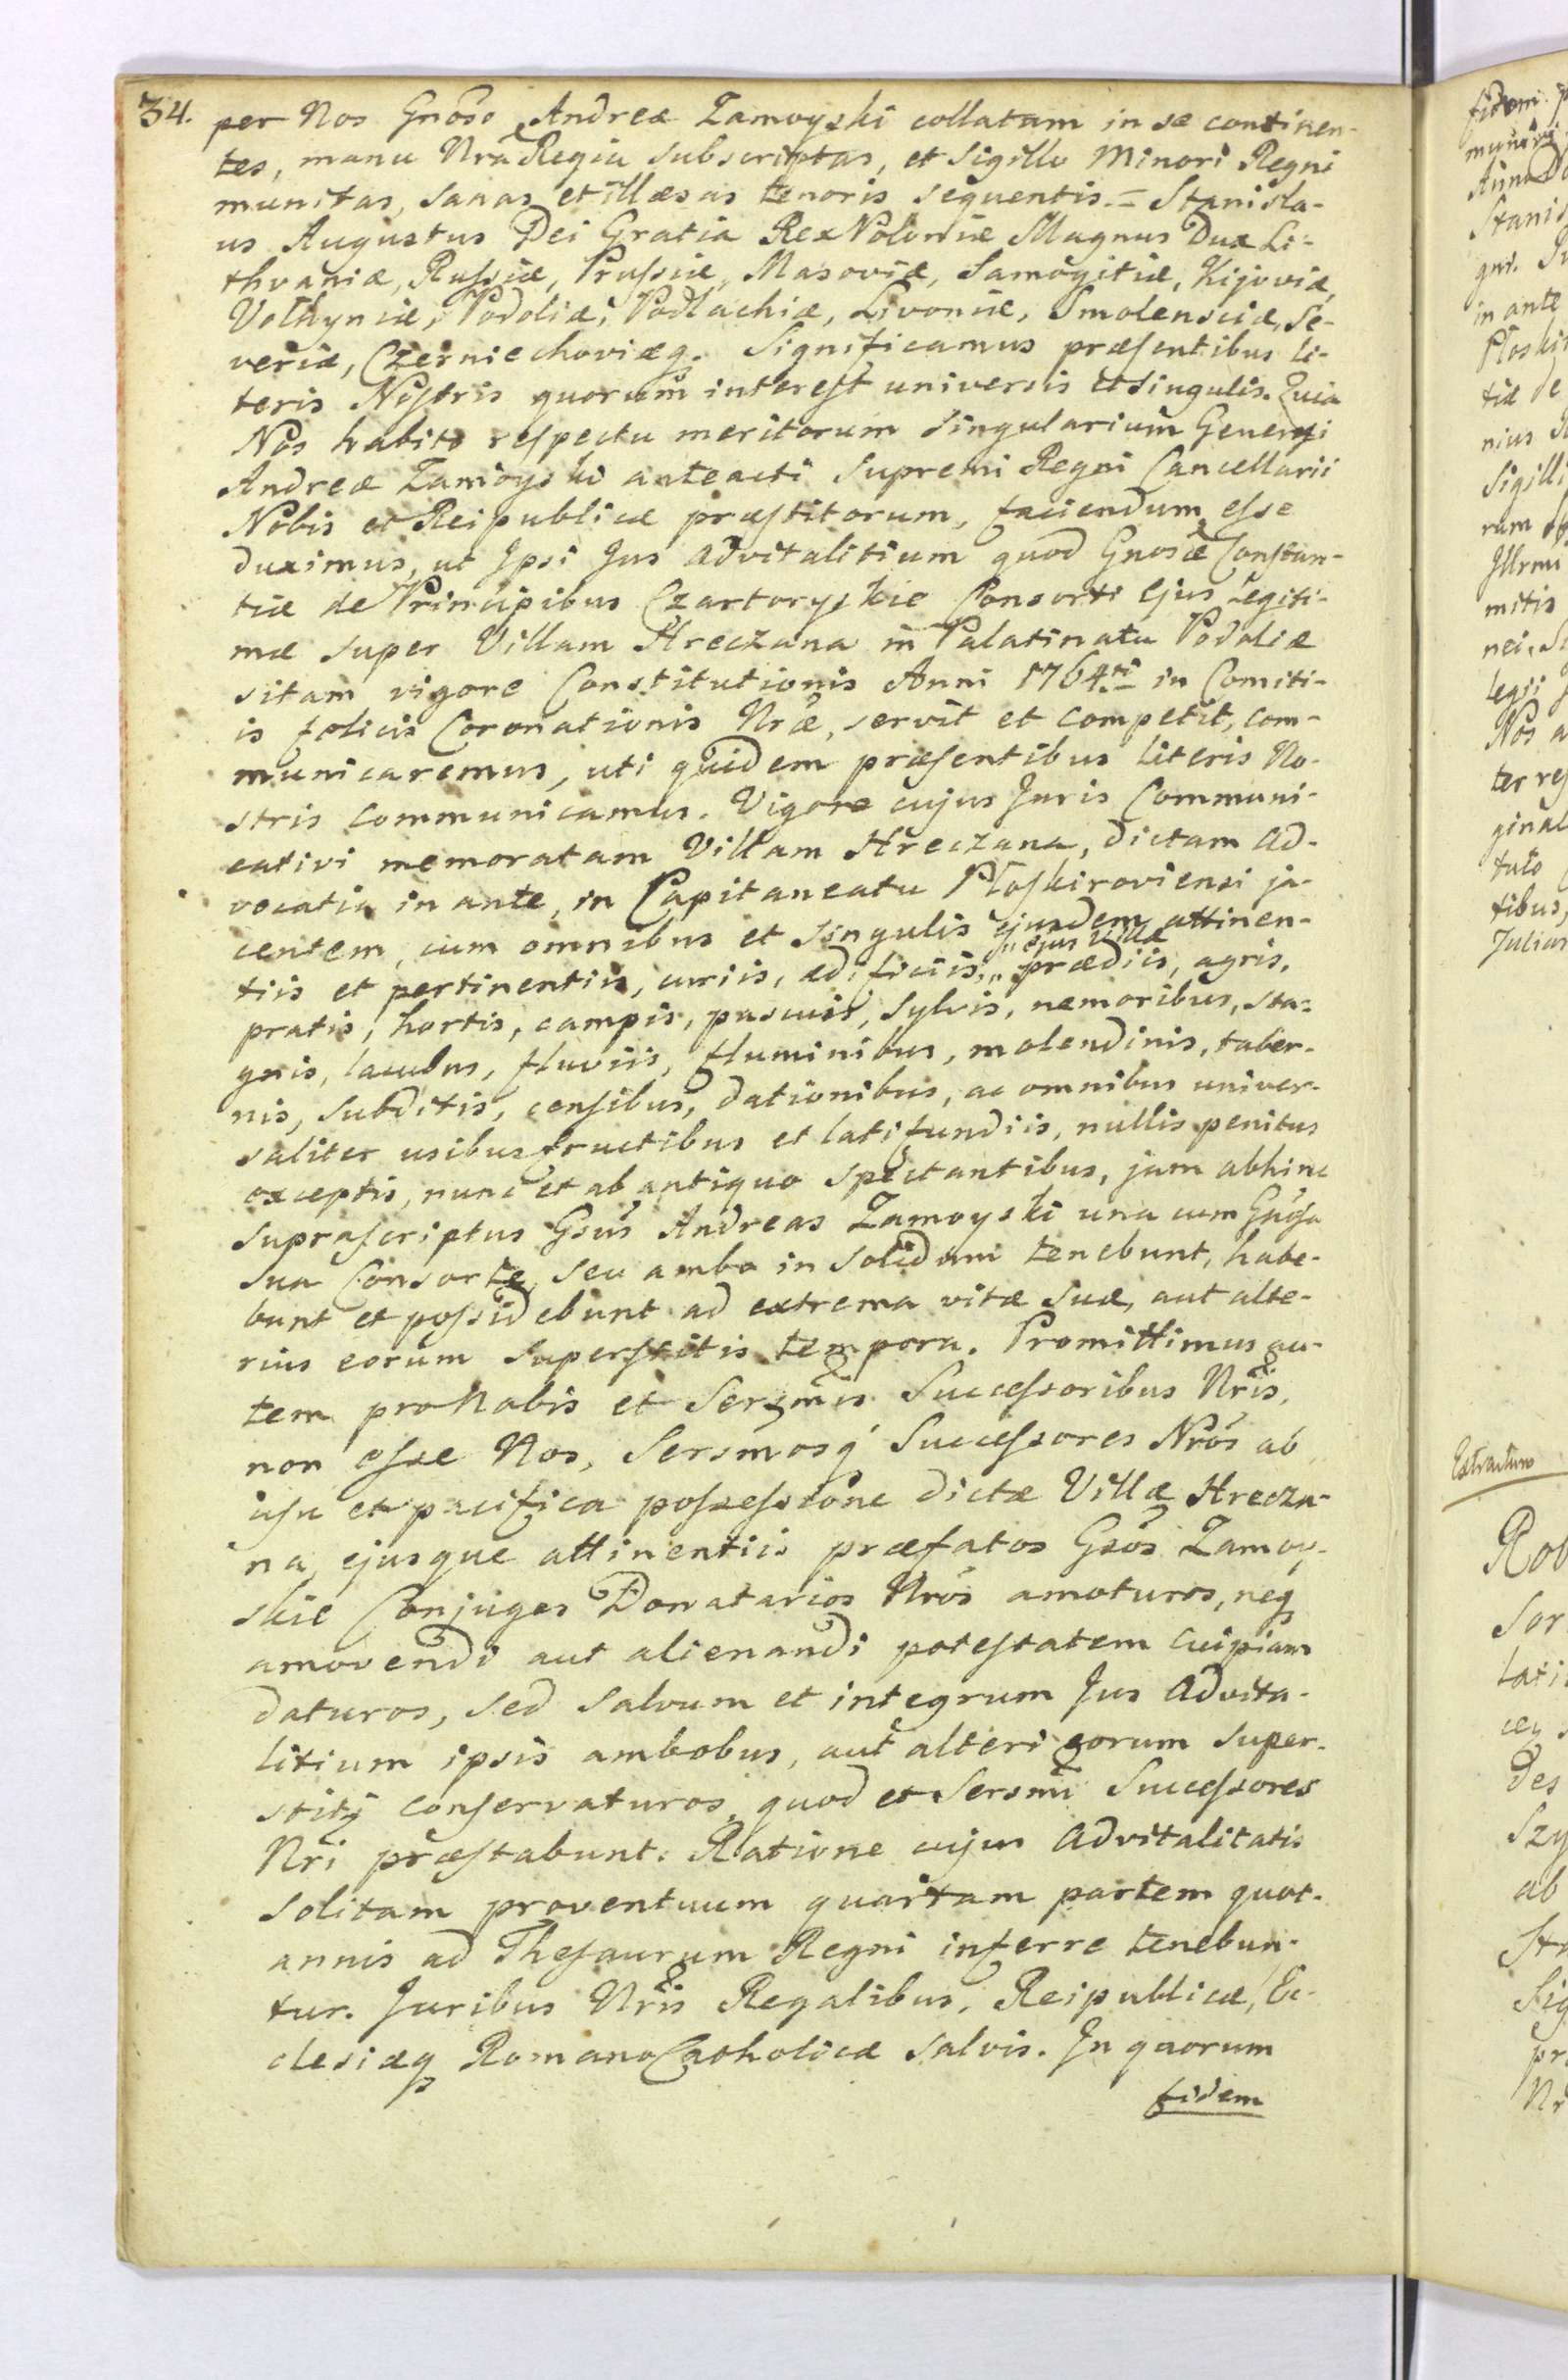 34.
per Nos Gnõso Andreæ Zamoyski collatam in se continen-
tes, manu Nrã Regia subscriptas, et sigillo Minori Regni
munitas, sanas et illæsas tenoris sequentis. = Stanisla-
us Augustus Dei Gratia Rex Poloniæ Magnus Dux Li-
thvaniæ, Russiæ, Prussiæ, Masoviæ, Samogitiæ, Kijoviæ,
Volhyniæ, Podoliæ, Podlachiæ, Livoniæ, Smolensciæ, Se-
veriæ, Czerniechoviæq. Significamus præsentibus li-
teris Nostris quorum interest universis et singulis. Quia
Nos habito respectu meritorum singularium Generosi
Andreæ Zamoyski anteacti Supremi Regni Cancellarii
Nobis et Reipublicæ præstitorum, faciendum esse
duximus, ut Ipsi Jus advitalitium quod Gnosæ Constan-
tiæ de Principibus Czartoryskie Consorti Ejus Legiti-
mæ super Villam Hreczana in Palatinatu Podoliæ
sitam vigore Constitutionis Anni 1764ti in Comiti-
is felicis Coronationis Nræ, servit et competit, com-
municaremus, uti quidem præsentibus literis No-
stris communicamus. Vigore cujus Juris Communi-
cativi memoratam Villam Hreczana, dictam Ad-
vocatia in ante, in Capitaneatu Płoskiroviensi ja-
centem, cum omnibus et singulis ejusdem attinen-
"ejus Villæ
tiis et pertinentiis, curiis, ædificiis," prædiis, agris,
pratis, hortis, campis, pascuis, sylvis, nemoribus, sta-
gnis, lacubus, fluviis, fluminibus, molendinis, taber-
nis, subditis, censibus, dationibus, ac omnibus univer-
saliter usibusfructibus et latifundiis, nullis penitus
exceptis, nunc et ab antiquo spectantibus, jam abhinc
suprascriptus Gsus Andreas Zamoyski una cum Gnosa
sua Consorte, seu ambo in solidum tenebunt, habe-
bunt et possidebunt ad extrema vitæ suæ, aut alte-
rius eorum superstitis tempora. Promittimus au-
tem pro Nobis et Sersmis Successoribus Nris,
non esse Nos, Sersmosq Successores Nros ab
usu et pacifica possessione dictæ Villæ Hrecza-
na, ejusque attinentiis præfatos Gsos Zamoy-
skie Conjuges Donatarios Nros amoturos, neq
amovendi aut alienandi potestatem cuipiam
daturos, sed salvum et integrum Jus Advita-
litium ipsis ambobus, aut alteri eorum super-
stiti conservaturos, quod et Sersmi Successores
Nri præstabunt. Ratione cujus Advitalitatis
solitam proventuum quartam partem quot-
annis ad Thesaurum Regni inferre tenebun-
tur. Juribus Nris Regalibus, Reipublicæ, Ec-
clesiæq Romano Catholicæ salvis. In quorum
fidem
fidem
Stanis
in ante
tiæ de
nius
Sigilli
rum
mitis
nei
Nos a
ginal
tulo
tibus,
Julian
Extractum
Rob
Sor
lati
des
Szy
ab
Sig
pr